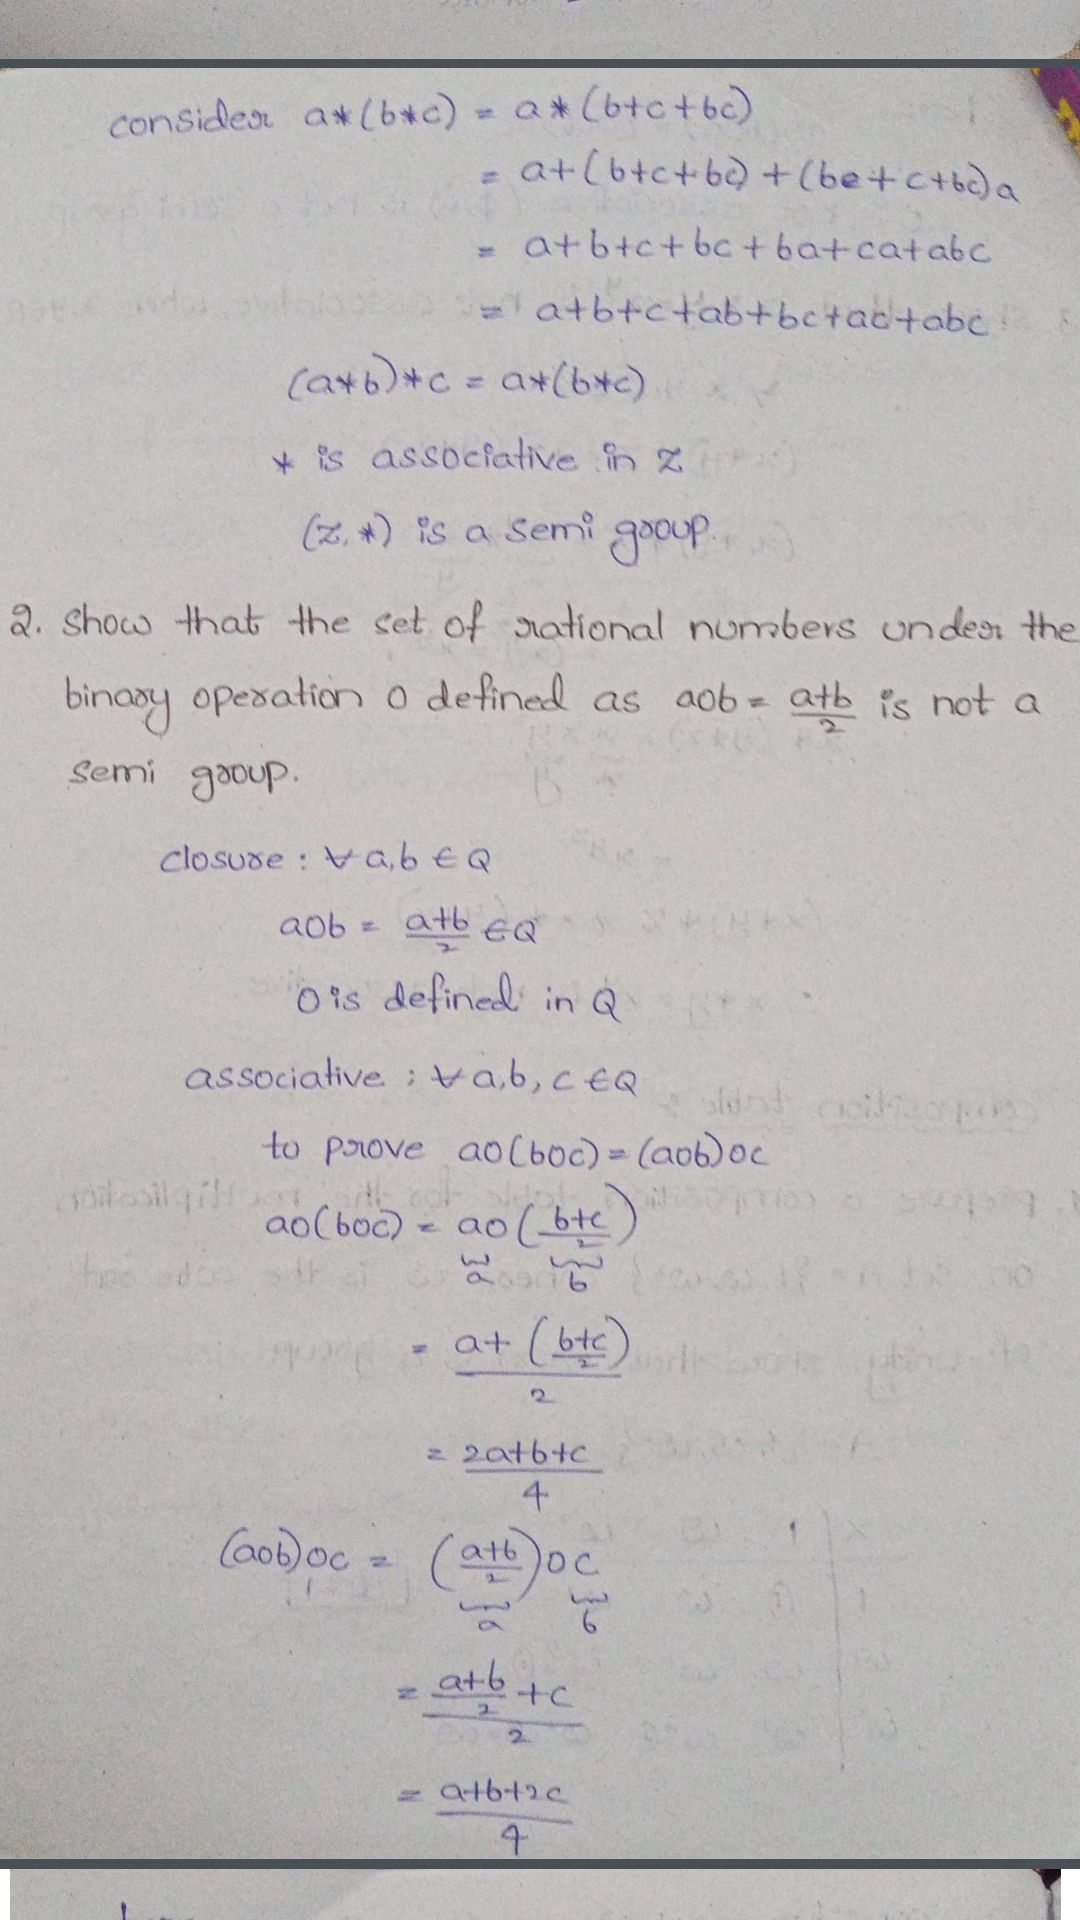 consider a*(b*c) = a*(b+c+bc)
= a+(b+c+bc)+(be+c+bc)a
= a+b+c+bc+ba+ca+abc
= a+b+c+ab+bc+ac+abc
(a*b)*c = a*(b*c)
* is associative in Z
(Z,*) is a semi group.
2. Show that the set of rational numbers under the
binary operation o defined as aob = a+b/2 is not a
semi group.
closure : ∀ a,b ∈ Q
aob = a+b/2 ∈ Q
o is defined in Q
associative : ∀ a,b,c ∈ Q
to prove ao(boc) = (aob)oc
ao(boc) = ao(b+c/2)
a b
= a+(b+c/2)/2
= 2a+b+c/4
(aob)oc = (a+b/2)oc
a b
= a+b/2 +c/2
= a+b+2c/4